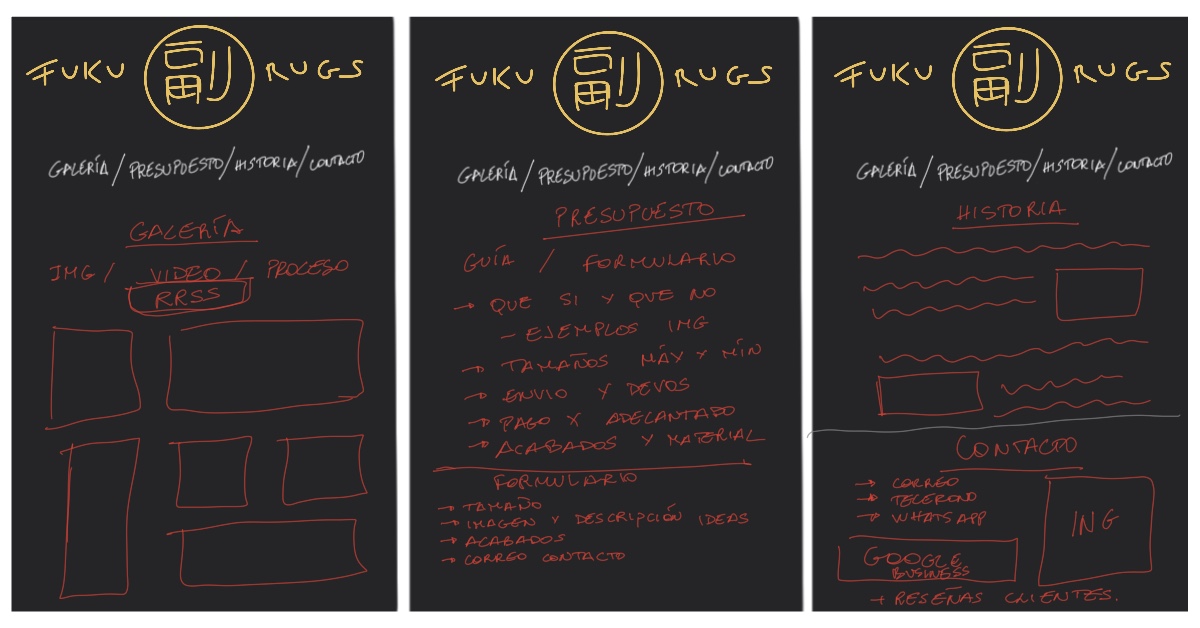 FUKU 副 RUGS
GALERÍA / PRESUPUESTO / HISTORIA / CONTACTO
GALERÍA
IMG / VIDEO / PROCESO
RRSS
FUKU 副 RUGS
GALERÍA / PRESUPUESTO / HISTORIA / CONTACTO
PRESUPUESTO
GUÍA / FORMULARIO
→ QUE SI Y QUE NO
- EJEMPLOS IMG
→ TAMAÑOS MÁX Y MÍN
→ ENVIO Y DEVOS
→ PAGO X ADELANTADO
→ ACABADOS Y MATERIAL
FORMULARIO
→ TAMAÑO
→ IMAGEN Y DESCRIPCIÓN IDEAS
→ ACABADOS
→ CORREO CONTACTO
FUKU 副 RUGS
GALERÍA / PRESUPUESTO / HISTORIA / CONTACTO
HISTORIA
CONTACTO
→ CORREO
→ TELEFONO
→ WHATSAPP
IMG
GOOGLE
BUSINESS
+ RESEÑAS CLIENTES.